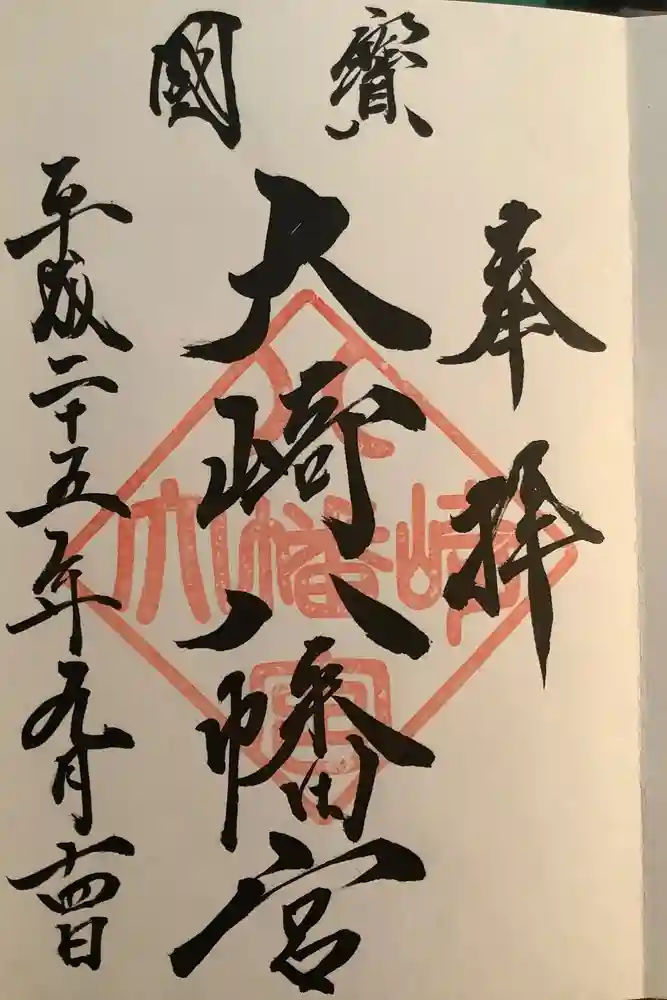 國寶
奉拝
大崎八幡宮
平成二十五年九月十四日
大崎八幡宮